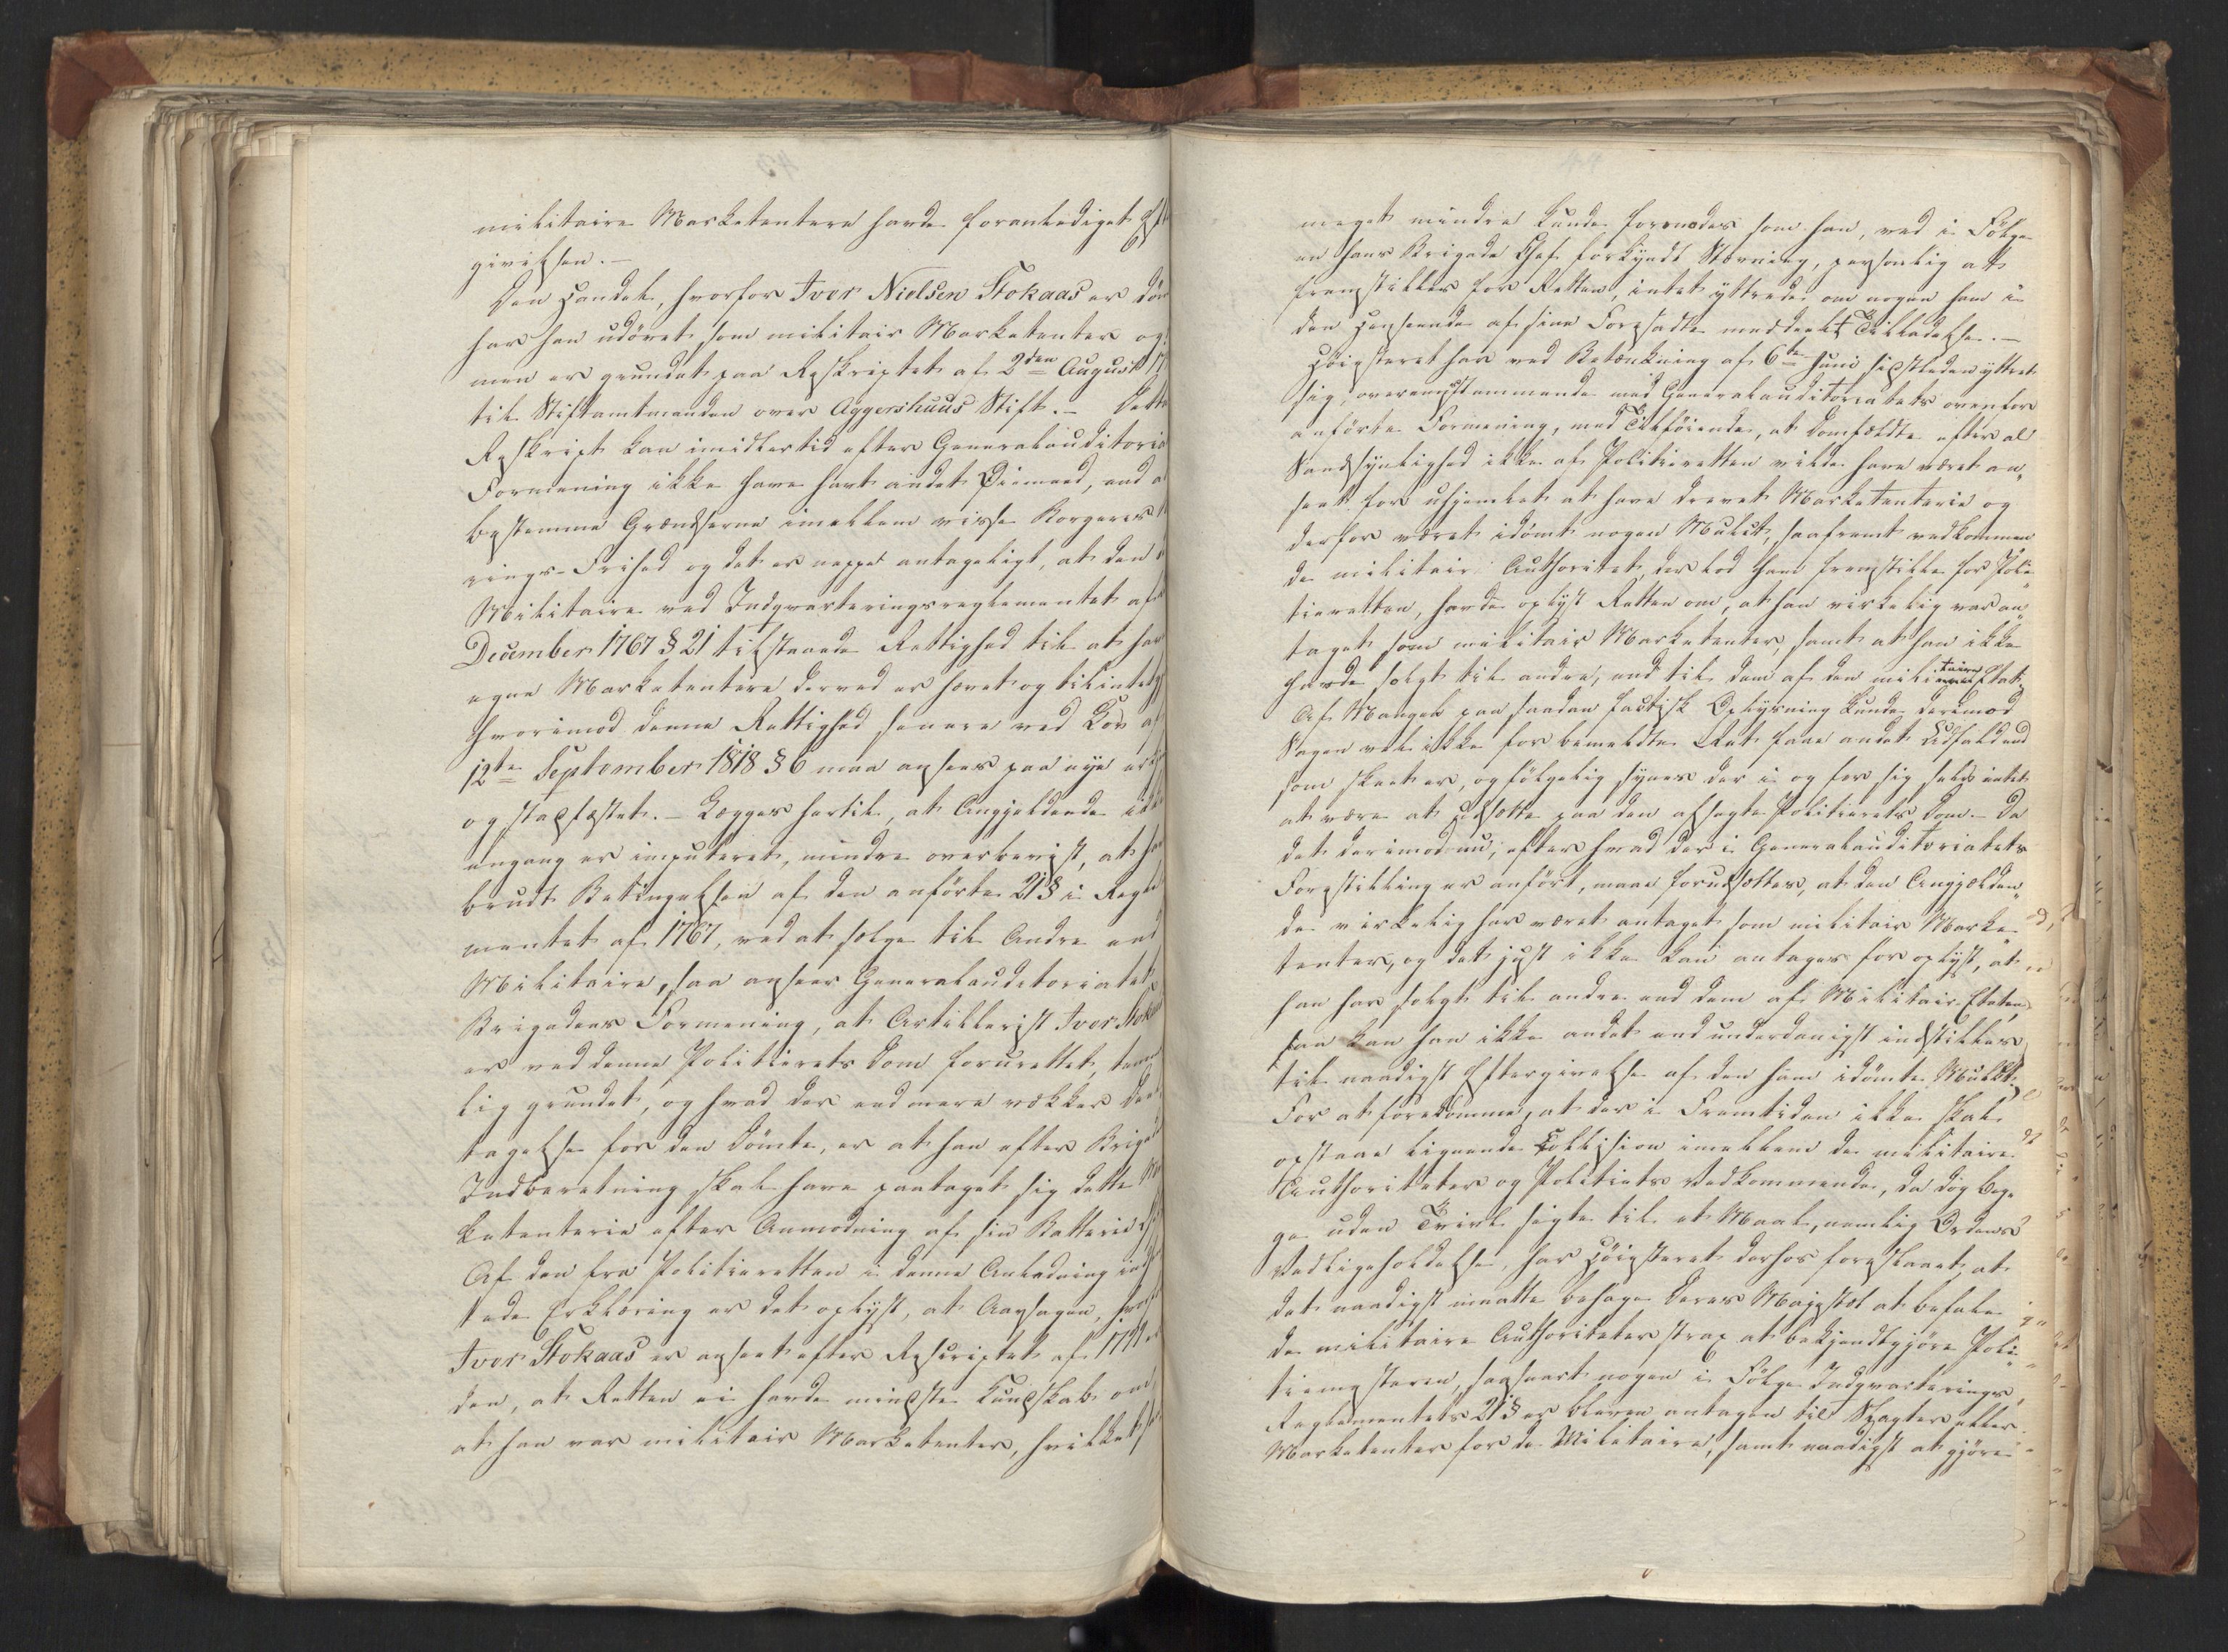 militaire Marketentere havde foranlediget Eft
givelsen.–
Den Handel, hvorfor Iver Nielsen Stokaas er döm
har han udövet som militair Marketenter og
men er grundet paa Reskriptet af 2den August 17
til Stiftamtmanden over Aggershuus Stift.– Dette
Reskript kan imidlertid efter Generalauditoria
Formening ikke have havt andet Öiemed, end a
bestemme Grændserne imellem visse Borgeres
rings-Frihed og det er neppe antageligt, at den
Militaire ved Indqvarteringsreglementet af
December 1767 § 21 tilstaaede Rettighed til at have
egne Marketentere derved er hævet og tilintetg
hvorimod denne Rettighed senere ved Lov af
12te September 1818 § 6 maa ansees paa nye erkj
og stadfæstet.– Lægges hertil, at Angjeldende ikke
engang er imputeret, mindre overbeviist, at have
brudt Betingelsen af den anförte 21 § i Regle
mentet af 1767, ved at sælge til Andre end
Militaire, saa ansees Generalauditoriatet
Brigadens Formening, at Artillerist Iver Stokaas
er ved denne Politierets Dom forurettet, tem
lig grundet, og hvad der end mere vækker Deel
tagelse for den Dömte, er at han efter Brigade
Indberetning skal have paataget sig dette Mar
ketenterie efter Anmodning af sin Batterie Ch
Af den fra Politieretten i denne Anledning ind
tede Erklæring er det oplyst, at Aarsagen, hvor
Iver Stokaas er anseet efter Rescriptet af 1799 er
den, at Retten ei havde mindste Kundskab om,
at han var militair Marketenter, hvilket saa
meget mindre kunde formodes som han, ved i Fölge
en hans Brigade Chef forkyndt Stævning, personlig at
fremstilles for Retten, intet yttrede om nogen ham i
den Henseende af sine Foresatte meddeelt Tilladelse.–
Höiesteret har ved Betænkning af 6te Juni sidstleden yttret
sig, overensstemmende med Generalauditoriatets ovenfor
anförte Formening, med Tilföiende, at Domfældte efter al
Sandsynlighed ikke af Politieretten vilde have været an„
seet for uhjemlet at have drevet Marketenterie og
derfor været idömt nogen Mulct, saafremt vedkommen
de militair Authoritet, der lod ham fremstille for Poli
tieretten, havde oplyst Retten om, at han virkelig var an„
taget som militair Marketenter, samt at han ikke
havde solgt til andre, end til dem af den militaire Etat.
Af Mangel paa saadan factisk Oplysning kunde derimod
Sagen vel ikke for bemeldte Ret faae andet Udfald end
som skeet er, og fölgelig synes der i og for sig selv intet
at være at udsætte paa den afsagte Politierets Dom.– Da
det derimod nu, efter hvad der i Generalauditoriatets
Forestilling er anfört, maae forudsættes, at den Angjelden„
de virkelig har været antaget som militair Marke„
tenter, og det just ikke kan antages for oplyst, at
han har solgt til andre end dem af Militair-Etaten,
saa kan han ikke andet end underdanigst indstilles
til naadigst Eftergivelse af den ham idömte Mulkt.
For at forekomme, at der i Fremtiden ikke skal
opstaae lignende Collision imellem de militaire
Authoriteter og Politiets Vedkommende, da dog beg„
ge uden Tvivl sigte til et Maal, nemlig Ordens
Vedligeholdelse, har Höiesteret derhos foreslaaet at
det naadigst maatte behage Deres Majestæt at befale
de militaire Authoriteter strax at bekjendtgjöre Poli„
tiemesteren, saasnart nogen i Fölge Indqvarterings„
Reglementets 21 § er bleven antagen til Slagter eller
Marketenter for de Militaire, samt naadigst at gjöre